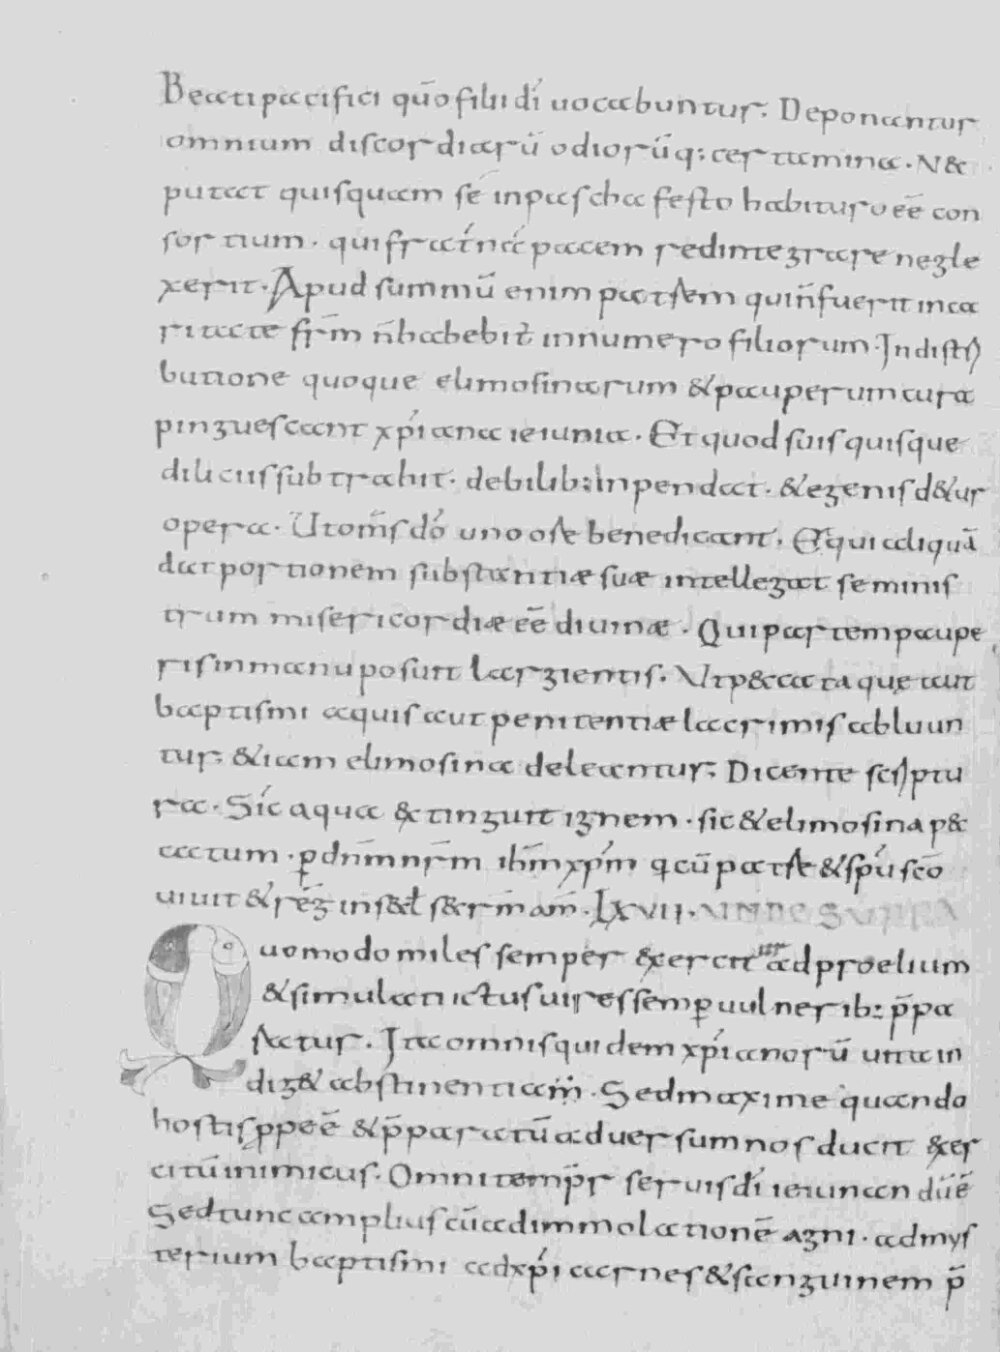 Beati pacifici qūo filii dī uocabuntur; Deponantur
omnium discordiarū odiorūq: certamina. N&
putet quisquam se in pascha festo habituro eē̄ con
sortium. qui frat́nā pacem redintegrare negle
xerit. Apud summū enim patrem qui ñ fuerit in ca
ritate frm̄ ñ habebit̄ in numero filiorum. In distri
butione quoque elimosinarum & pauperum cura
pinguescant xp̄iana ieiunia. Et quod suis quisque
diliciis subtrahit. debilib: inpendat. & egenis d&ur
opera. Ut om̄s dō uno ore benedicant. Et qui aliquā
dat portionem substantiæ suæ intellegat se minis
trum misericordiæ eē̄ diuinæ. Qui partem paupe
ris in manu posuit largientis. Ut p&cata quę aut
baptismi aquis aut penitentiæ lacrimis abluun
tur; &iam elimosina deleantur; Dicente scriptu
ra. Sic aqua extinguit ignem. sic & elimosina p&
catum. ꝑ dn̄m nr̄m ih̄m xp̄m q cū patre & sp̄u scō
uiuit & reḡ in s&ł s&rm̄ am̄. LXVII. UNDE SUPRA
Quomodo miles semper exercit ad proelium
& simulati ictus uires semꝑ uulnerib: p̄pa
ratur. Ita omnis quidem xp̄ianorū uita in
dig& abstinentiam. Sed maxime quando
hostis ꝓpe ē & p̄paratū aduersum nos ducit exer
citū inimicus. Omni temp̄r seruis dī ieiunandū ē
Sed tunc amplius cū ad immolationē agni. ad mys
terium baptismi ad xp̄i carnes & sanguinem p̄